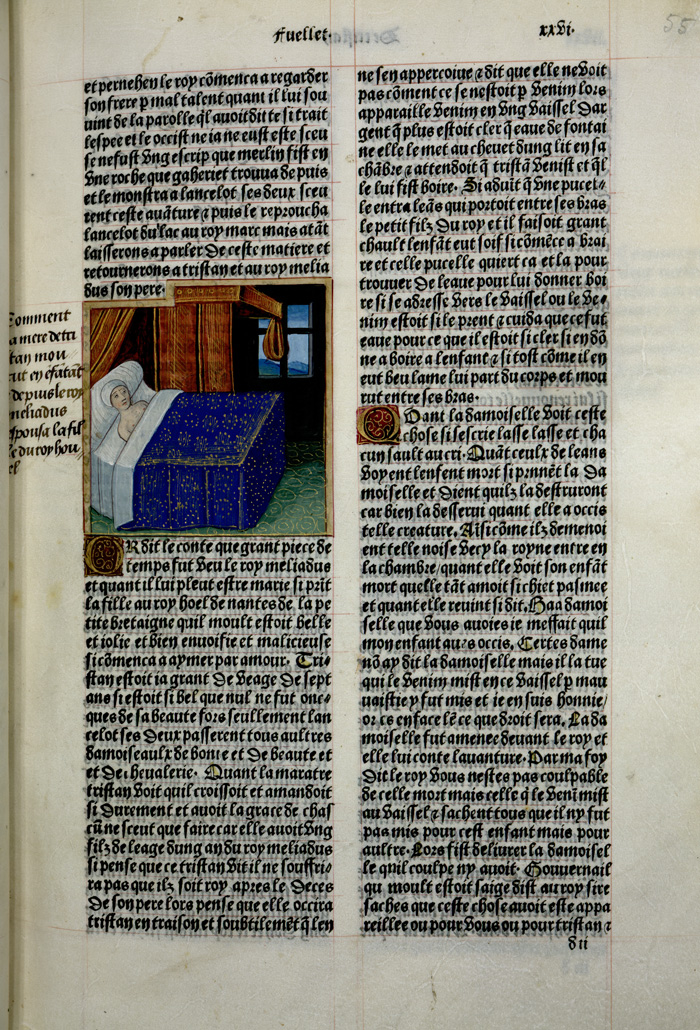 Fueillet.
xxvi.
55
et pernehen le roy cõmenca a regarder
son frere p mal talent quant il lui sou
uint de la parolle ql auoit dit te si trait
lespee et le occist ne ia ne eust este sceu
se ne fust vng escrip que merlin fist en
vne roche que gaheriet trouua depuis
et le monstra a lancelot ses deux sceu
rent ceste auãture ⁊ puis le reproucha
lancelot du lac au roy marc mais atãt
laisserons a parler de ceste matiere et
retournerons a tristan et au roy melia
dus son pere.
Comment
a mere de tri
tan mou
rut en efãtãt
depuis le roy
meliadus
espousa la fil
le du roy hou
el
OR dit le conte que grant piece de
temps fut veu le roy meliadus
et quant il lui pleut estre marie si prĩt
la fille au roy hoel de nantes de la pe
tite bretaigne quil moult estoit belle
et iolie et bien enuoisie et malicieuse
si cõmenca a aymer par amour. Tri-
stan estoit ia grant de leage de sept
ans si estoit si bel que nul ne fut onc-
ques de sa beaute fors seullement lan
celot ses deux passerent tous aultres
damoiseaulx de bonte et de beaute et
et de cheualerie. Quant la maratre
tristan voit quil croissoit et amandoit
si durement et auoit la grace de chas
cũ ne sceut que faire car elle auoit vng
filz de leage dung an du roy meliadus
si pense que ce tristan vit il ne souffri-
ra pas que ilz soit roy apres le deces
de son pere lors pense que elle occira
tristan en traison et soubtilemẽt q̃ len
ne sen appercoiue ⁊ dit que elle ne voit
pas cõment ce se nestoit p venim lors
apparaille venim en vng vaissel dar
gent q̃ plus estoit cler q̃ eaue de fontai
ne elle le met au cheuet dung lit en sa
chãbre ⁊ attendoit q̃ tristã venist et q̃l
le lui fist boire. Si aduĩt q̃ vne pucel-
le entra leãs qui portoit entre ses bras
le petit filz du roy et il faisoit grant
chault lenfãt eut soif si cõmẽce a brai
re et celle pucelle quiert ca et la pour
trouuer de leaue pour lui donner boi
re si se adresse vers le vaissel ou le ve-
nim estoit si le prent ⁊ cuida que ce fut
eaue pour ce que il estoit si cler si en dõ
ne a boire a lenfant ⁊ si tost cõme il en
eut beu lame lui part du corps et mou
rut entre ses bras.
Qant la damoiselle voit ceste
chose si sescrie lasse lasse et cha
cun sault au cri. Quãt ceulx de leans
voyent lenfent mort si prẽnẽt la da
moiselle et dient quilz la destruront
car bien la desserui quant elle a occis
telle creature. Aĩsi cõme ilz demenoi
ent telle noise vecy la royne entre en
la chambre/ quant elle voit son enfãt
mort quelle tãt amoit si chiet pasmee
et quant elle reuint si dit. Haa damoi
selle que vous auoies ie meffait quil
mon enfant aues occis. Certes dame
nõ ay dit la damoiselle mais il la tue
qui le venim mist en ce vaissel p mau
uaistie y fut mis et ie en suis honnie/
or es en face lẽ ce que droit sera. La da
moiselle fut amenee deuant le roy et
elle lui conte lauanture. Par ma foy
dit le roy vous nestes pas coulpable
de celle mort mais celle q̃ le venĩ mist
au vaissel ⁊ sachent tous que il ny fut
pas mis pour cest enfant mais pour
aultre. Lors fist deliurer la damoisel
le quil coulpe ny auoit. Gouuernail
qui moult estoit saige dist au roy sire
saches que ceste chose auoit este appa
reillee ou pour vous ou pour tristan ⁊
dii